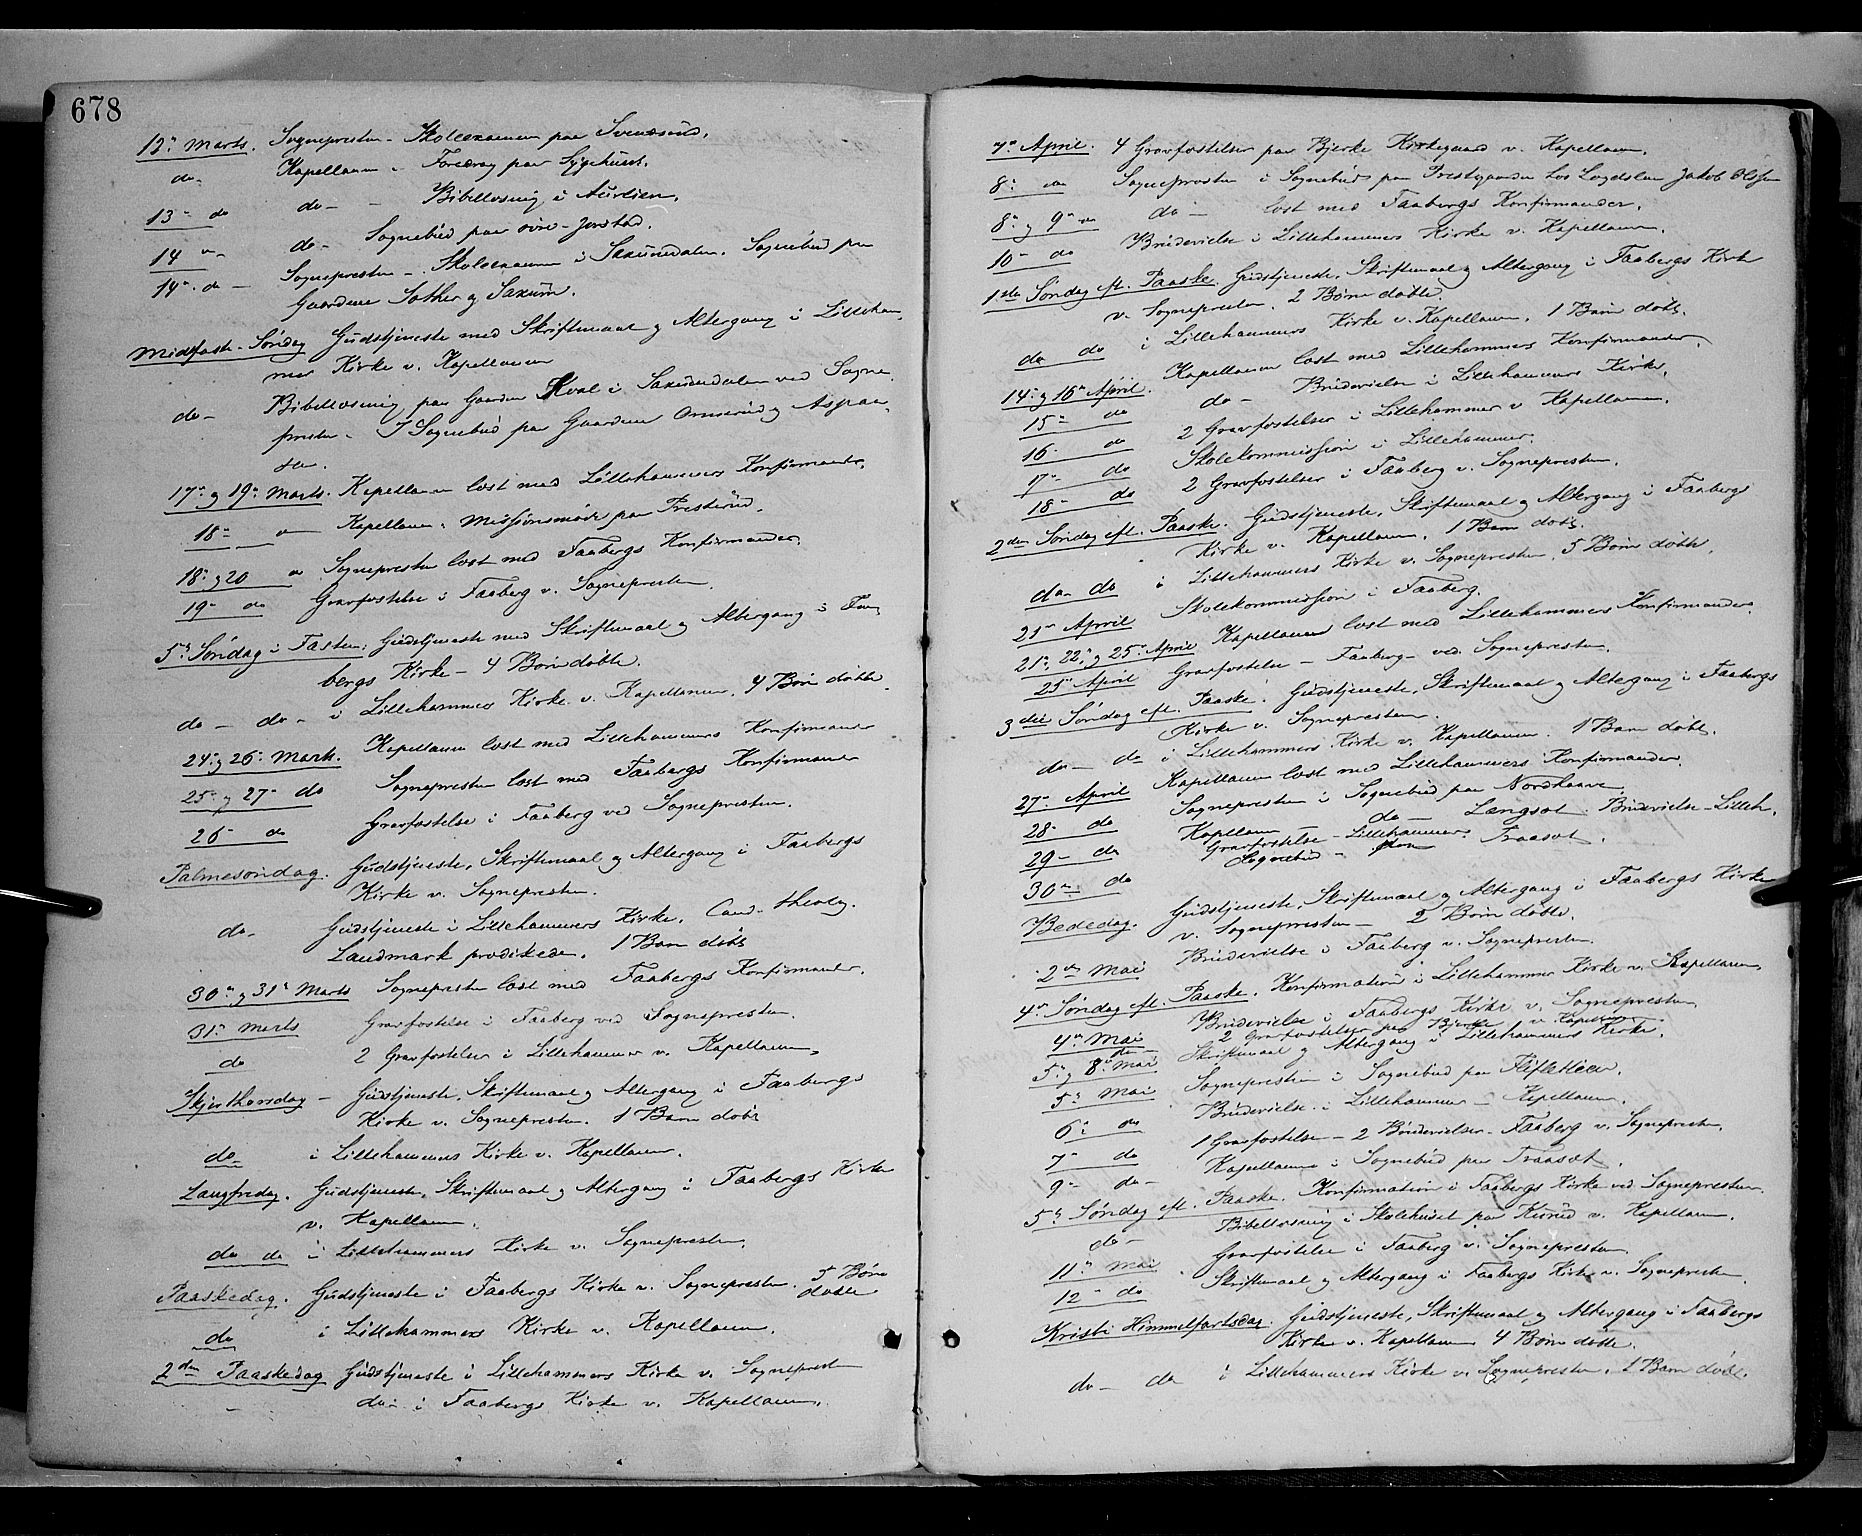 678
12te Marts. Sognepresten - Skoleexamen paa
do - Kapellanen - Foredrag paa Sygehuset.
13de do do - - Bibellæsning i
14 " - do - Sognebud paa øvre - Jørstad.
14de do - Sognepresten - Skoleexamen i Saxumdalen. Sognebud paa
Gaardene Sother og Saxum.
Midfaste - Søndag Gudstjeneste med Skriftemaal og Altergang i Lilleham
mer Kirke v. Kapellanen
do - Bibellæsning paa Gaarden Kval i Saxumdalen ved Sogne
presten - I Sognebud paa Gaardene og

17de og 19de Marts. Kapellanen læst med Lillehammers Konfirmander.
18de " Kapellanen i Missionsmøde paa Presterud.
18de og 20 " Sognepresten læst med Faabergs Konfirmander.
19de do Gravfæstelse i Faaberg v. Sognepresten.
5te Søndag i Fasten. Gudstjeneste med Skriftemaal og Altergang i Faa
bergs Kirke - 4 Børn døbte.
do - do - i Lillehammers Kirke v. Kapellanen. 4 Børn døbte.
24de og 26de Marts. Kapellanen læst med Lillehammers Konfirmander
25de og 27de do Sognepresten læst med Faabergs Konfirmander
26de do Gravfæstelse i Faaberg ved Sognepresten.
Palmesøndag. Gudstjeneste, Skriftemaal og Altergang i Faabergs
Kirke v. Sognepresten.
do - Gudstjeneste i Lillehammers Kirke. Cand. theolog.
Landmark prædikede. 1 Barn døbt
30de og 31te Marts Sognepresten læst med Faabergs Konfirmander.
31te Marts Gravfæstelse i Faaberg ved Sognepresten.
do 2 Gravfæstelser i Lillehammer v. Kapellanen.
Skjærthorsdag - Gudstjeneste, Skriftemaal og Altergang i Faabergs
Kirke v. Sognepresten. 1 Barn døbt
do i Lillehammers Kirke v. Kapellanen.
Langfredag. Gudstjeneste, Skriftemaal og Altergang i Faabergs Kirke
v. Kapellanen.
do do i Lillehammers Kirke v. Sognepresten.
Paaskedag. Gudstjeneste i Faabergs Kirke v. Sognepresten. 5 Børn
døbte
do i Lillehammers Kirke v. Kapellanen.
2den Paaskedag Gudstjeneste i Lillehammers Kirke v. Sognepresten
- do - i Faabergs Kirke v. Kapellanen.
7de April. 4 Gravfæstelser paa Bjerke Kirkegaard v. Kapellanen.
8de do Sognepresten i Sognebud paa Prestgaarden hos Jakob Olsen
8de og 9de do do - læst med Faabergs Konfirmander.
10de do Brudevielse i Lillehammers Kirke v. Kapellanen.
1ste Søndag eft. Paaske Gudstjeneste, Skriftemaal og Altergang i Faabergs Kirke
v. Sognepresten. 2 Børn døbte.
do do i Lillehammers Kirke v. Kapellanen. 1 Barn døbt.
14de og 16de April. Kapellanen læst med Lillehammers Konfirmander.
15de do do - Brudevielse i Lillehammers Kirke.
16 - do 2 Gravfæstelser i Lillehammer v. Kapellanen.
17de do Skolekommission i Lillehammer.
18de do 2 Gravfæstelser i Faaberg v. Sognepresten.
2den Søndag eft. Paaske. Gudstjeneste, Skriftemaal og Altergang i Faabergs
Kirke v. Kapellanen. 1 Barn døbt.
do - do i Lillehammers Kirke v. Sognepresten. 5 Børn døbte.
21de April Skolekommission i Faaberg.
21de, 22de og 25de April Kapellanen læst med Lillehammers Konfirmander.
25de April Gravfæstelse - Faaberg - ved Sognepresten.
3die Søndag eft. Paaske. Gudstjeneste, Skriftemaal og Altergang i Faabergs
Kirke v. Sognepresten.
do - do i Lillehammers Kirke v. Kapellanen. 1 Barn døbt.
27de April Kapellanen læst med Lillehammers Konfirmander.
28de do Sognepresten i Sognebud paa
29 - do Kapellanen - do - . Brudevielse - Lilleh.
30te do Gravfæstelse - Lillehammer.
Sognebud -
Bededag. Gudstjeneste, Skriftemaal og Altergang i Faabergs Kirke
v. Sognepresten - 2 Børn døbte.
2den Mai Brudevielse i Faaberg v. Sognepresten.
4de Søndag eft. Paaske. Konfirmation i Lillehammer Kirke v. Kapellanen.
4de Mai Brudevielse i Faabergs Kirke v. Sognepresten
do - 2 Gravfæstelser paa Bjerke v. Kapellanen
5te og 8de Mai Skriftemaal og Altergang i Lillehammers Kirke.
5te Mai Sognepresten i Sognebud paa
6te do Brudevielse i Lillehammer - Kapellanen.
7de do 1 Gravfæstelse - 2 Brudevielser - Faaberg v. Sognepresten.
9de do - Kapellanen i Sognebud paa
5te Søndag eft. Paaske. Konfirmation i Faabergs Kirke ved Sognepresten.
do - Bibellæsning i Skolehuset paa v. Kapellanen.
11te Mai Gravfæstelse i Faaberg v. Sognepresten.
12 - do Skriftemaal og Altergang i Faabergs Kirke v. Sognepresten.
Kristi Himmelfartsdag. Gudstjeneste, Skriftemaal og Altergang i Faabergs
Kirke v. Kapellanen 4 Børn døbte.
do - do i Lillehammers Kirke v. Sognepresten. 1 Barn døbt.